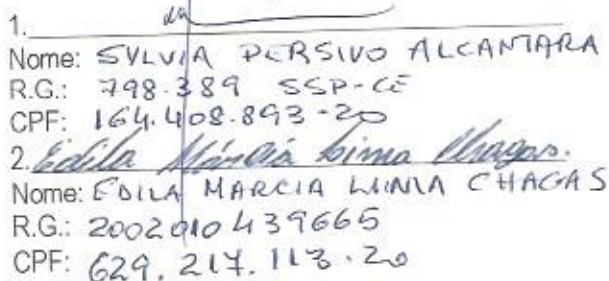 1.
Nome: SYLVIA PERSIVO ALCANTARA
R.G.: 798.389 SSP-CE
CPF: 164.408.893-20
2. Edila Márcia Lima Chagas.
Nome: EDILA MARCIA LIMA CHAGAS
R.G.: 2002010439665
CPF: 629.217.113.20